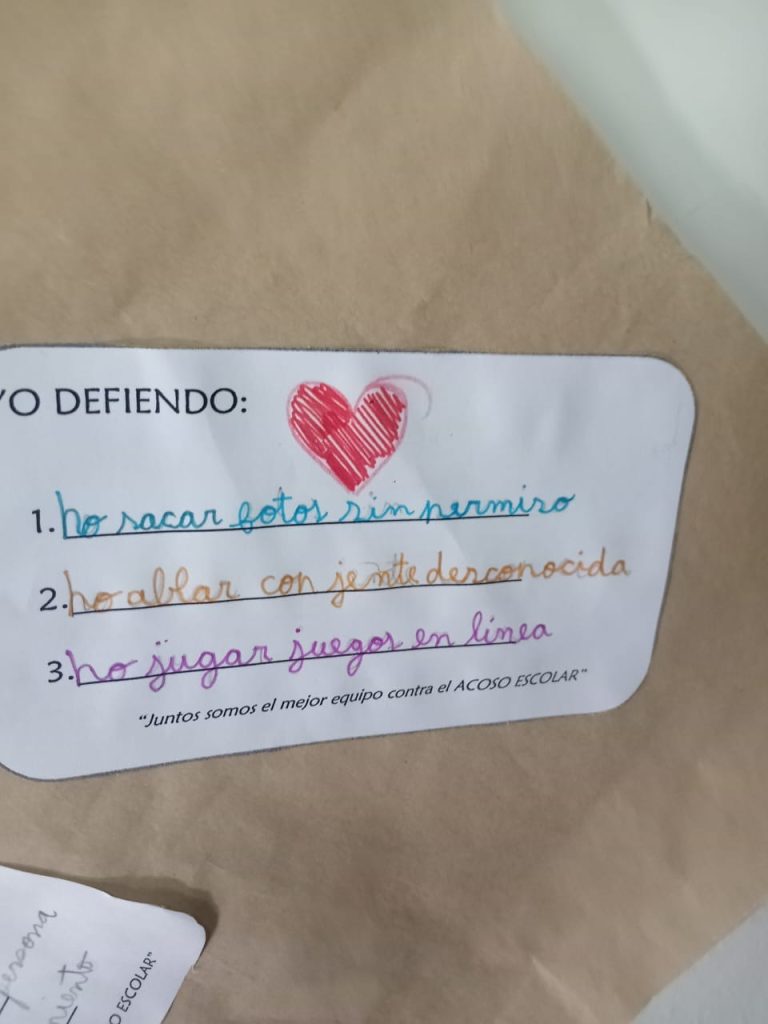 YO DEFIENDO:
1. no sacar fotos sin permiso
2. no ablar con jente desconocida
3. no jugar juegos en linea
"Juntos somos el mejor equipo contra el ACOSO ESCOLAR"
persona
O ESCOLAR"